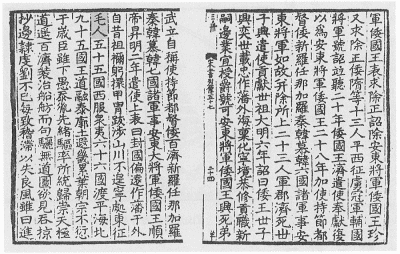 軍倭國王表求除正詔除安東將軍倭國王珍
又求除正倭隋等十三人平西征虜冠軍輔國
將軍號詔並聽二十年倭國王濟遣使奉獻復
以爲安東將軍倭國王二十八年加使持節都
督倭新羅任那加羅秦韓慕韓六國諸軍事安
東將軍如故并除所上二十三人軍郡濟死世
子興遣使貢獻世祖大明六年詔曰倭王世子
興奕世載忠作藩外海稟化寧境恭修貢職新
嗣邊業宜授爵號可安東將軍倭國王興死弟
武立自稱使持節都督倭百濟新羅任那加羅
秦韓慕韓七國諸軍事安東大將軍倭國王順
帝昇明二年遣使上表曰封國偏遠作藩于外
自昔祖禰躬擐甲冑跋涉山川不遑寧處東征
毛人五十五國西服衆夷六十六國渡平海北
九十五國王道融泰廓土遐畿累葉朝宗不愆
于歲臣雖下愚忝胤先緒驅率所統歸崇天極
道遥百濟裝治船舫而句驪無道圖欲見吞掠
抄邊隷虔劉不已每致稽滯以失良風雖曰進